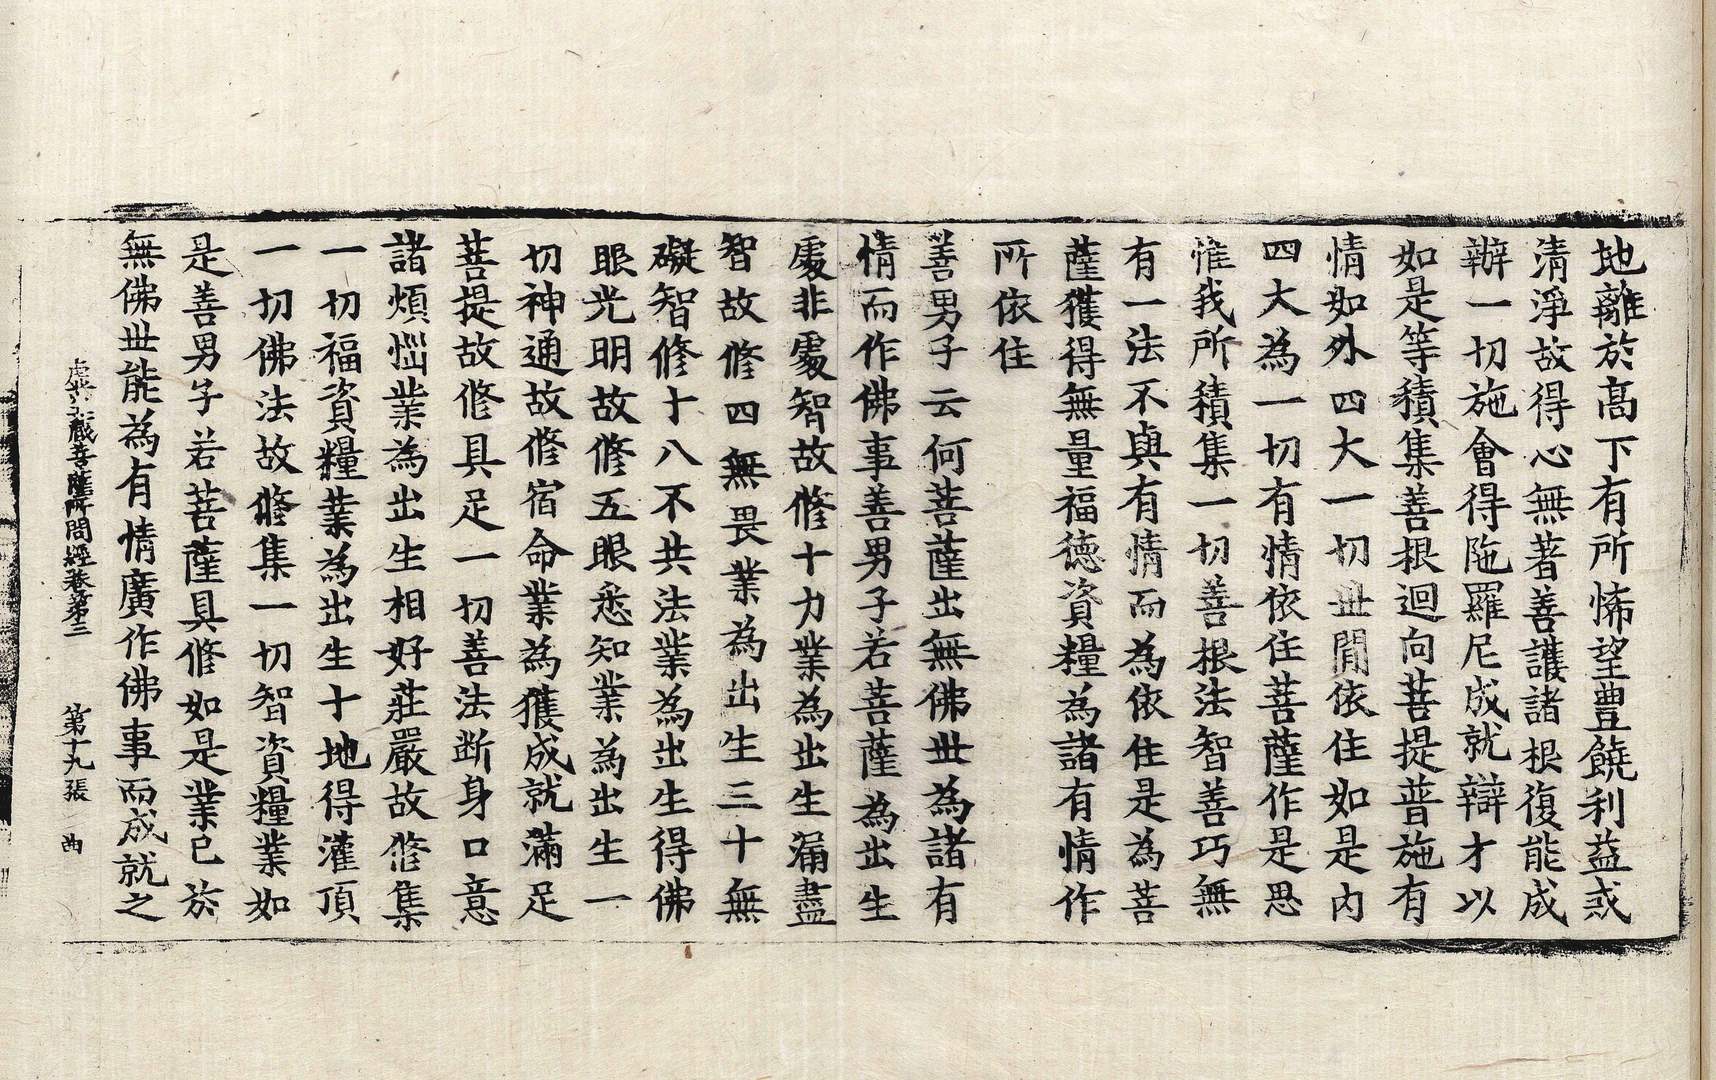 地離於高下有所悕望豊饒利益或
清淨故得心無著善護諸根復能成
辦一切施會得陁羅尼成就辯才以
如是等積集善根迴向菩提普施有
情如外四大一切世間依住如是内
四大為一切有情依住菩薩作是思
惟我所積集一切善根法智善巧無
有一法不與有情而為依住是為菩
薩獲得無量福德資糧為諸有情作
所依住
善男子云何菩薩出無佛世為諸有
情而作佛事善男子若菩薩為出生
處非處智故修十力業為出生漏盡
智故修四無畏業為出生三十無
礙智修十八不共法業為出生得佛
眼光明故修五眼悉知業為出生一
切神通故修宿命業為獲成就滿足
菩提故修具足一切善法断身口意
諸煩惱業為出生相好莊嚴故修集
一切福資糧業為出生十地得灌頂
一切佛法故修集一切智資糧業如
是善男子若菩薩具修如是業已於
無佛世能為有情廣作佛事而成就之
虚空藏菩薩所問經卷第三 第十九張 曲